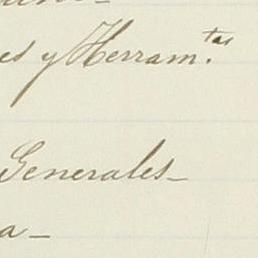 es y Herram.tas
Generales
a